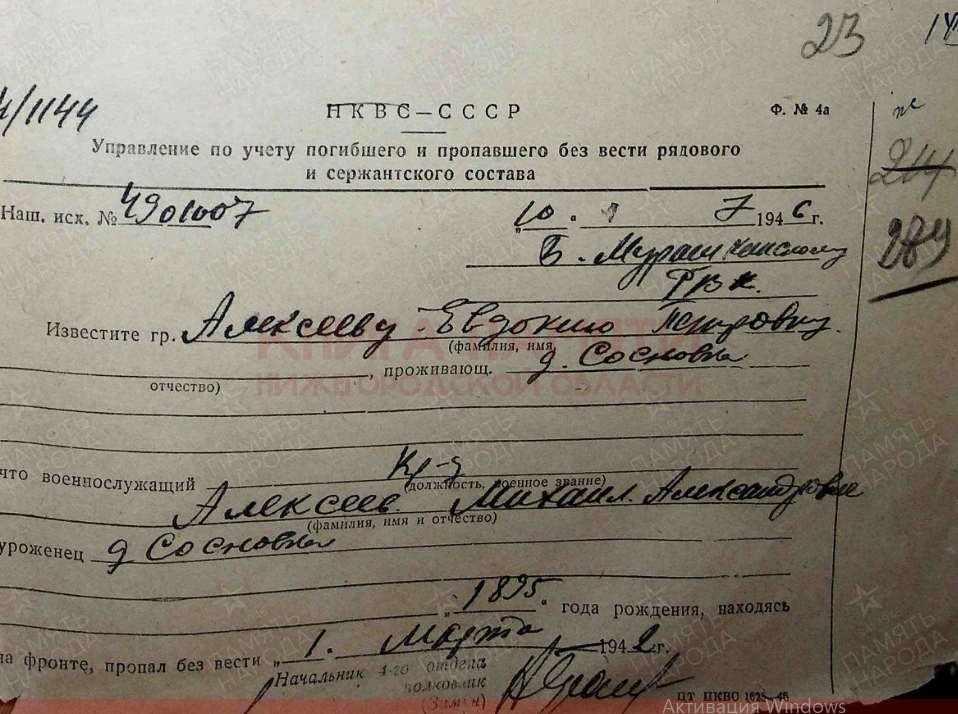 23
/1144
НКВС–СССР
Ф. № 4а
Управление по учету погибшего и пропавшего без вести рядового
и сержантского состава
214
289
Наш. исх. № 4901007
„10 “ 7 1946 г.
Б. Мурашкинскому
РВК.
Известите гр. Алексееву Евдокию Петровну.
(фамилия, имя,
, проживающ. д. Сосновка
отчество)
КНИГА ПАМЯТИ
НИЖЕГОРОДСКОЙ ОБЛАСТИ
что военнослужащий Кр-ц
(должность, военное звание)
Алексеев Михаил Александрович
(фамилия, имя и отчество)
уроженец д Сосновка
„ 1895 “ года рождения, находясь
на фронте, пропал без вести „ 1. Марта 1942 г.
Начальник 4-го отдела
полковник
ЦТ ПКВО 1625—46
ПАМЯТЬ НАРОДА
Активация Windows